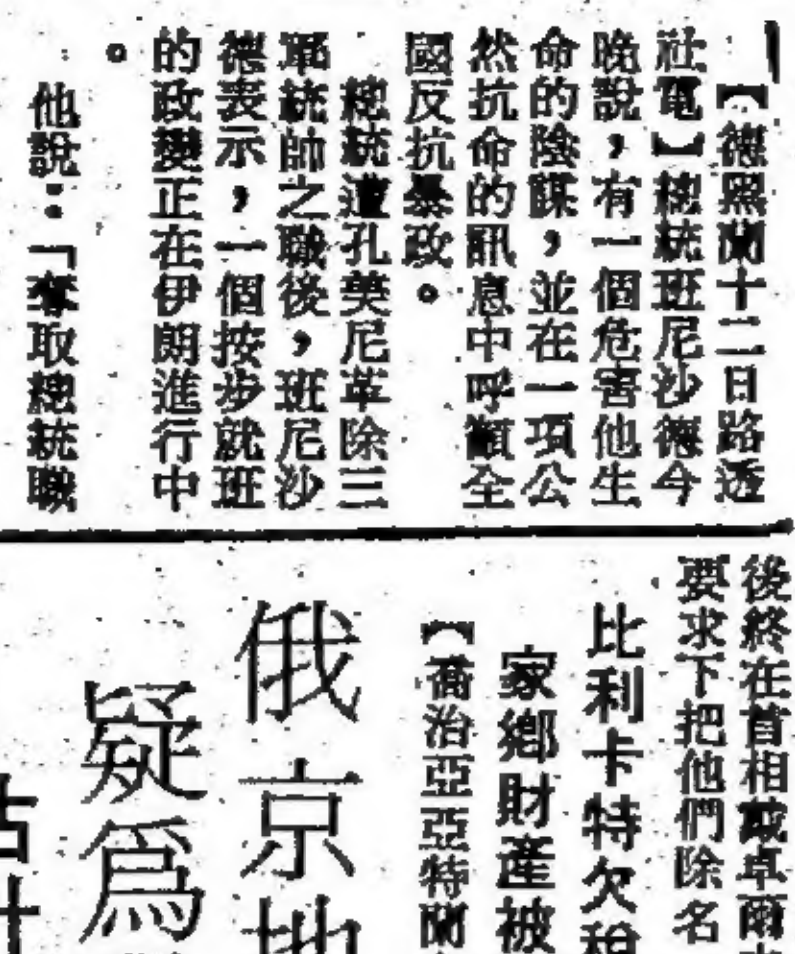 【德黑蘭十二日路透
社電】總統班尼沙德今
晚說，有一個危害他生
命的陰謀，並在一項公
然抗命的訊息中呼籲全
國反抗暴政。
總統遭孔美尼革除三
軍統帥之職後，班尼沙
德表示，一個按步就班
的政變正在伊朗進行中
。
他說：「奪取總統職
後終在首相戴卓爾
要求下把他們除名
比利卡特欠稅
家鄉財產被
【喬治亞亞特蘭
俄京地
疑爲